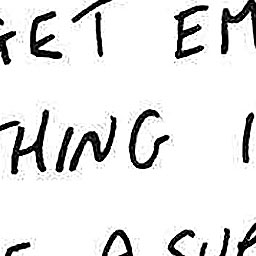 GET EM
THING I
A SUP